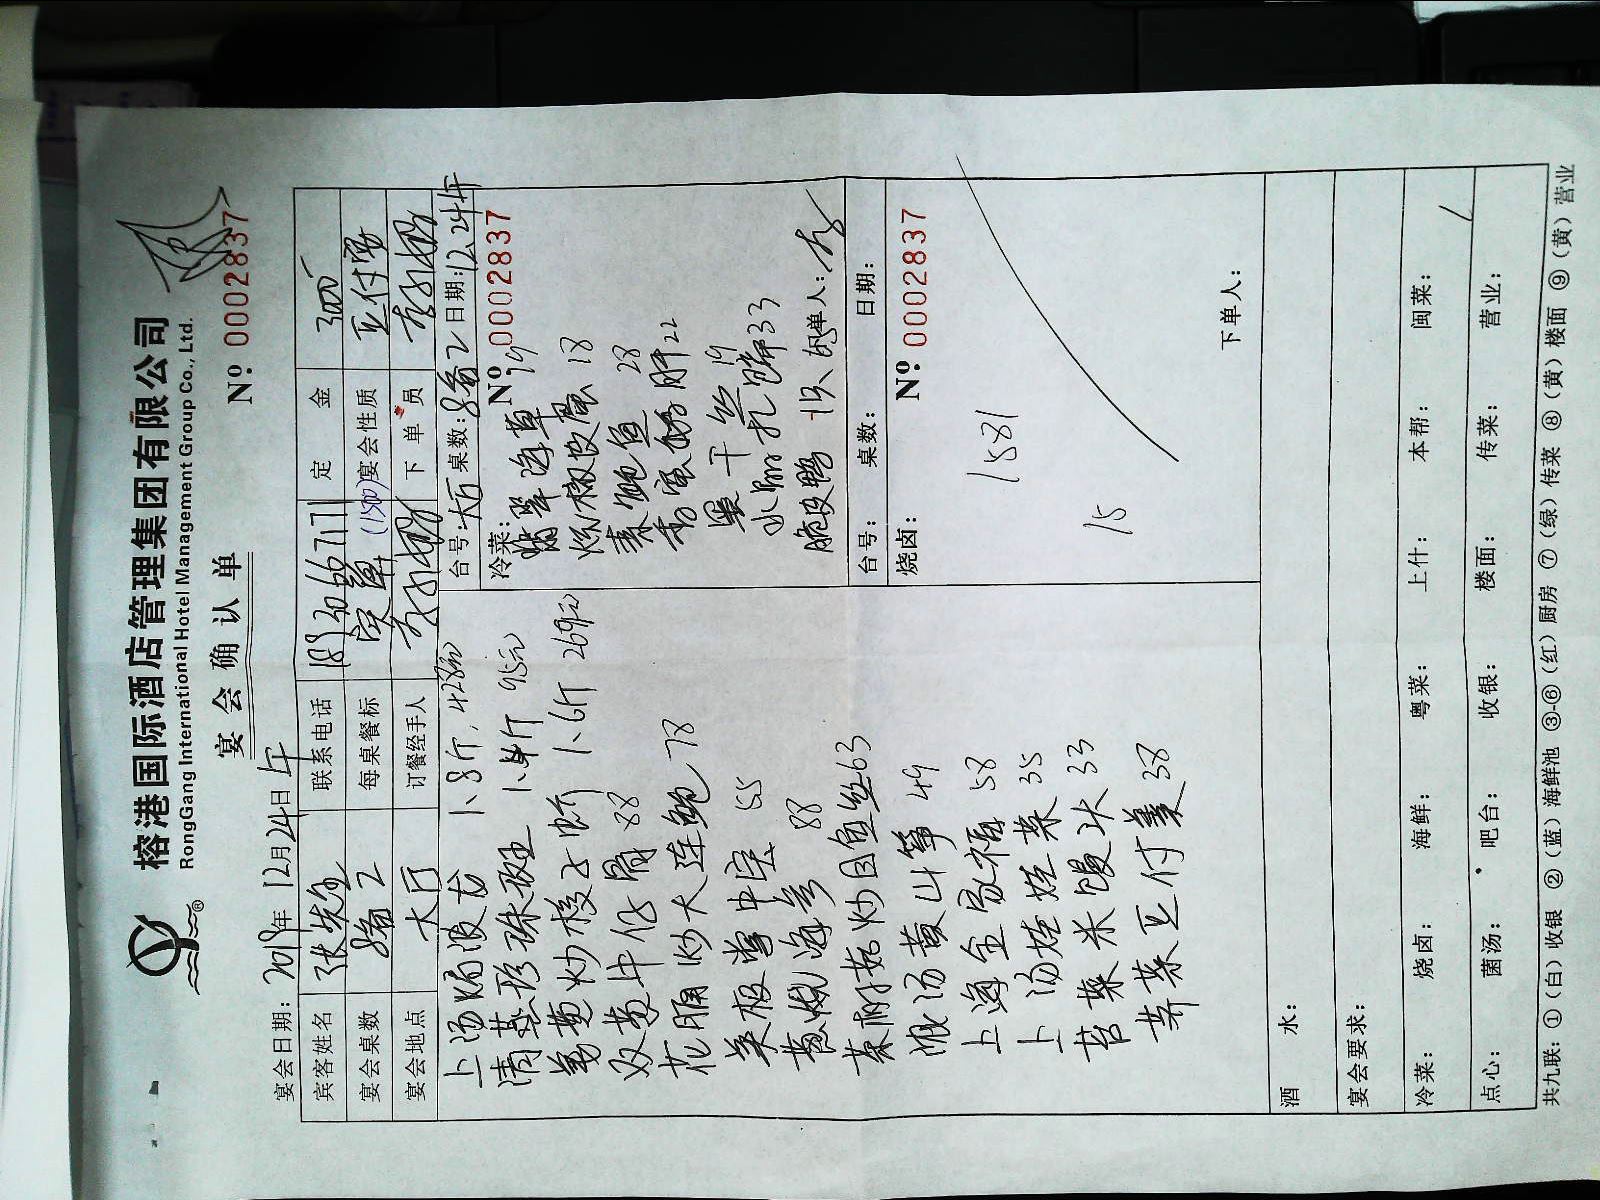 榕港国际酒店管理集团有限公司
RongGang International Hotel Management Group Co., Ltd.
宴会确认单
№ 0002837
宴会日期：2019年12月24日午
宾客姓名 张先生 联系电话 18930667171 定金 3000
宴会桌数 8备2 每桌餐标 实单 (1580) 宴会性质
宴会地点 大厅 订餐经手人 下单员
台号：大厅 桌数：8备2 日期：12.24午
冷菜： № 0002837
翡翠海草 19
炝椒皮蛋 18
素鲍鱼 28
香蛋鹅肝 22
干丝 19
水晶扎蹄 33
脆皮鸭 1只 下单人：
上汤焗波龙 1.8斤，428元
清蒸珍珠斑 1.4斤 95元
姜葱炒梭子蟹 1.6斤 269元
双葱牛仔骨 88
花脯炒大连鲍 78
55
葱烧海参 88
茶树菇炒目鱼丝 63
浓汤黄山笋 49
上海全家福 58
上汤娃娃菜 35
苔菜米馒头 33
荠菜豆付羹 38
台号： 桌数： 日期：
烧卤： № 0002837
1581
15
下单人：
酒水：
宴会要求：
冷菜： 烧卤： 海鲜： 粤菜： 上什： 本帮： 闽菜：
点心： 菌汤： 吧台： 收银： 楼面： 传菜： 营业：
共九联：①（白）收银 ②（蓝）海鲜池 ③-⑥（红）厨房 ⑦（绿）传菜 ⑧（黄）楼面 ⑨（黄）营业